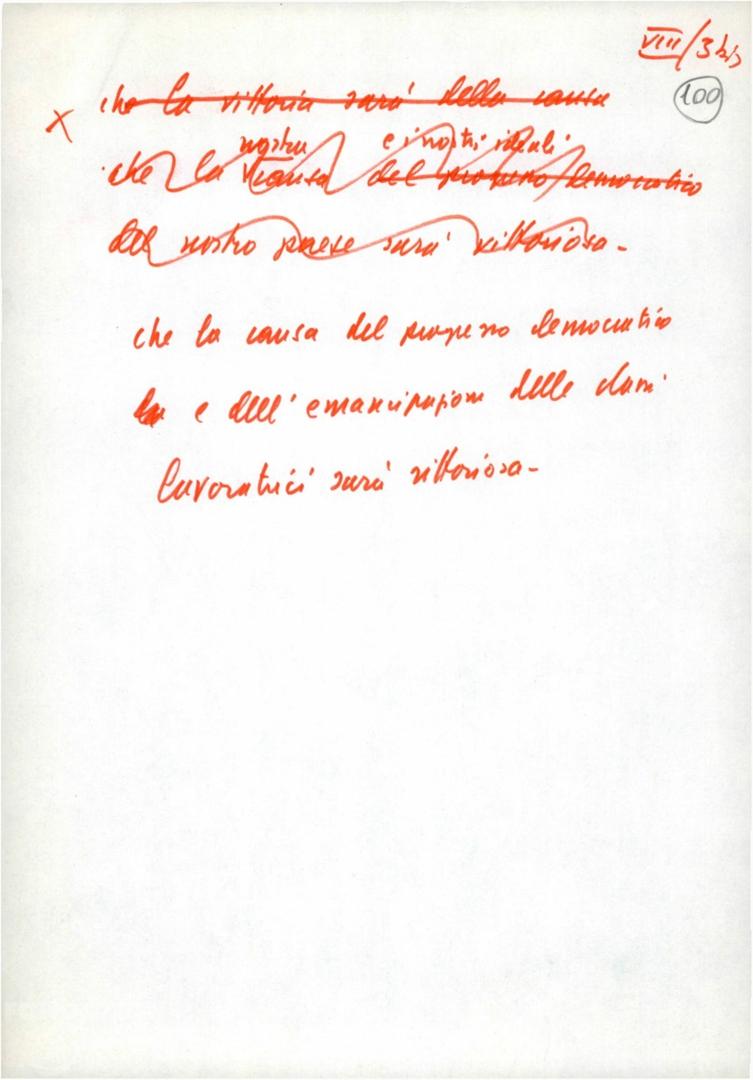 VIII/3 bis
100
x che la vittoria sarà della causa
nostra e i nostri ideali
che la causa del progresso democratico
del nostro paese sarà vittoriosa -
che la causa del progresso democratico
e dell'emancipazione delle classi
lavoratrici sarà vittoriosa -